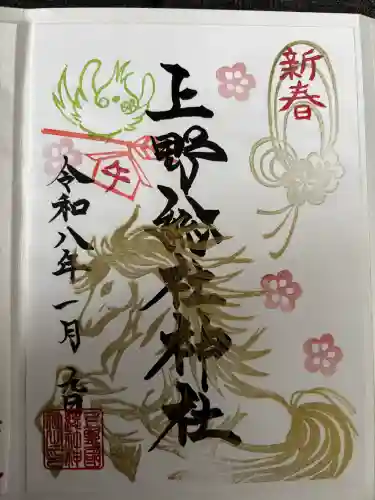 新春
上野総社神社
午
令和八年一月九日